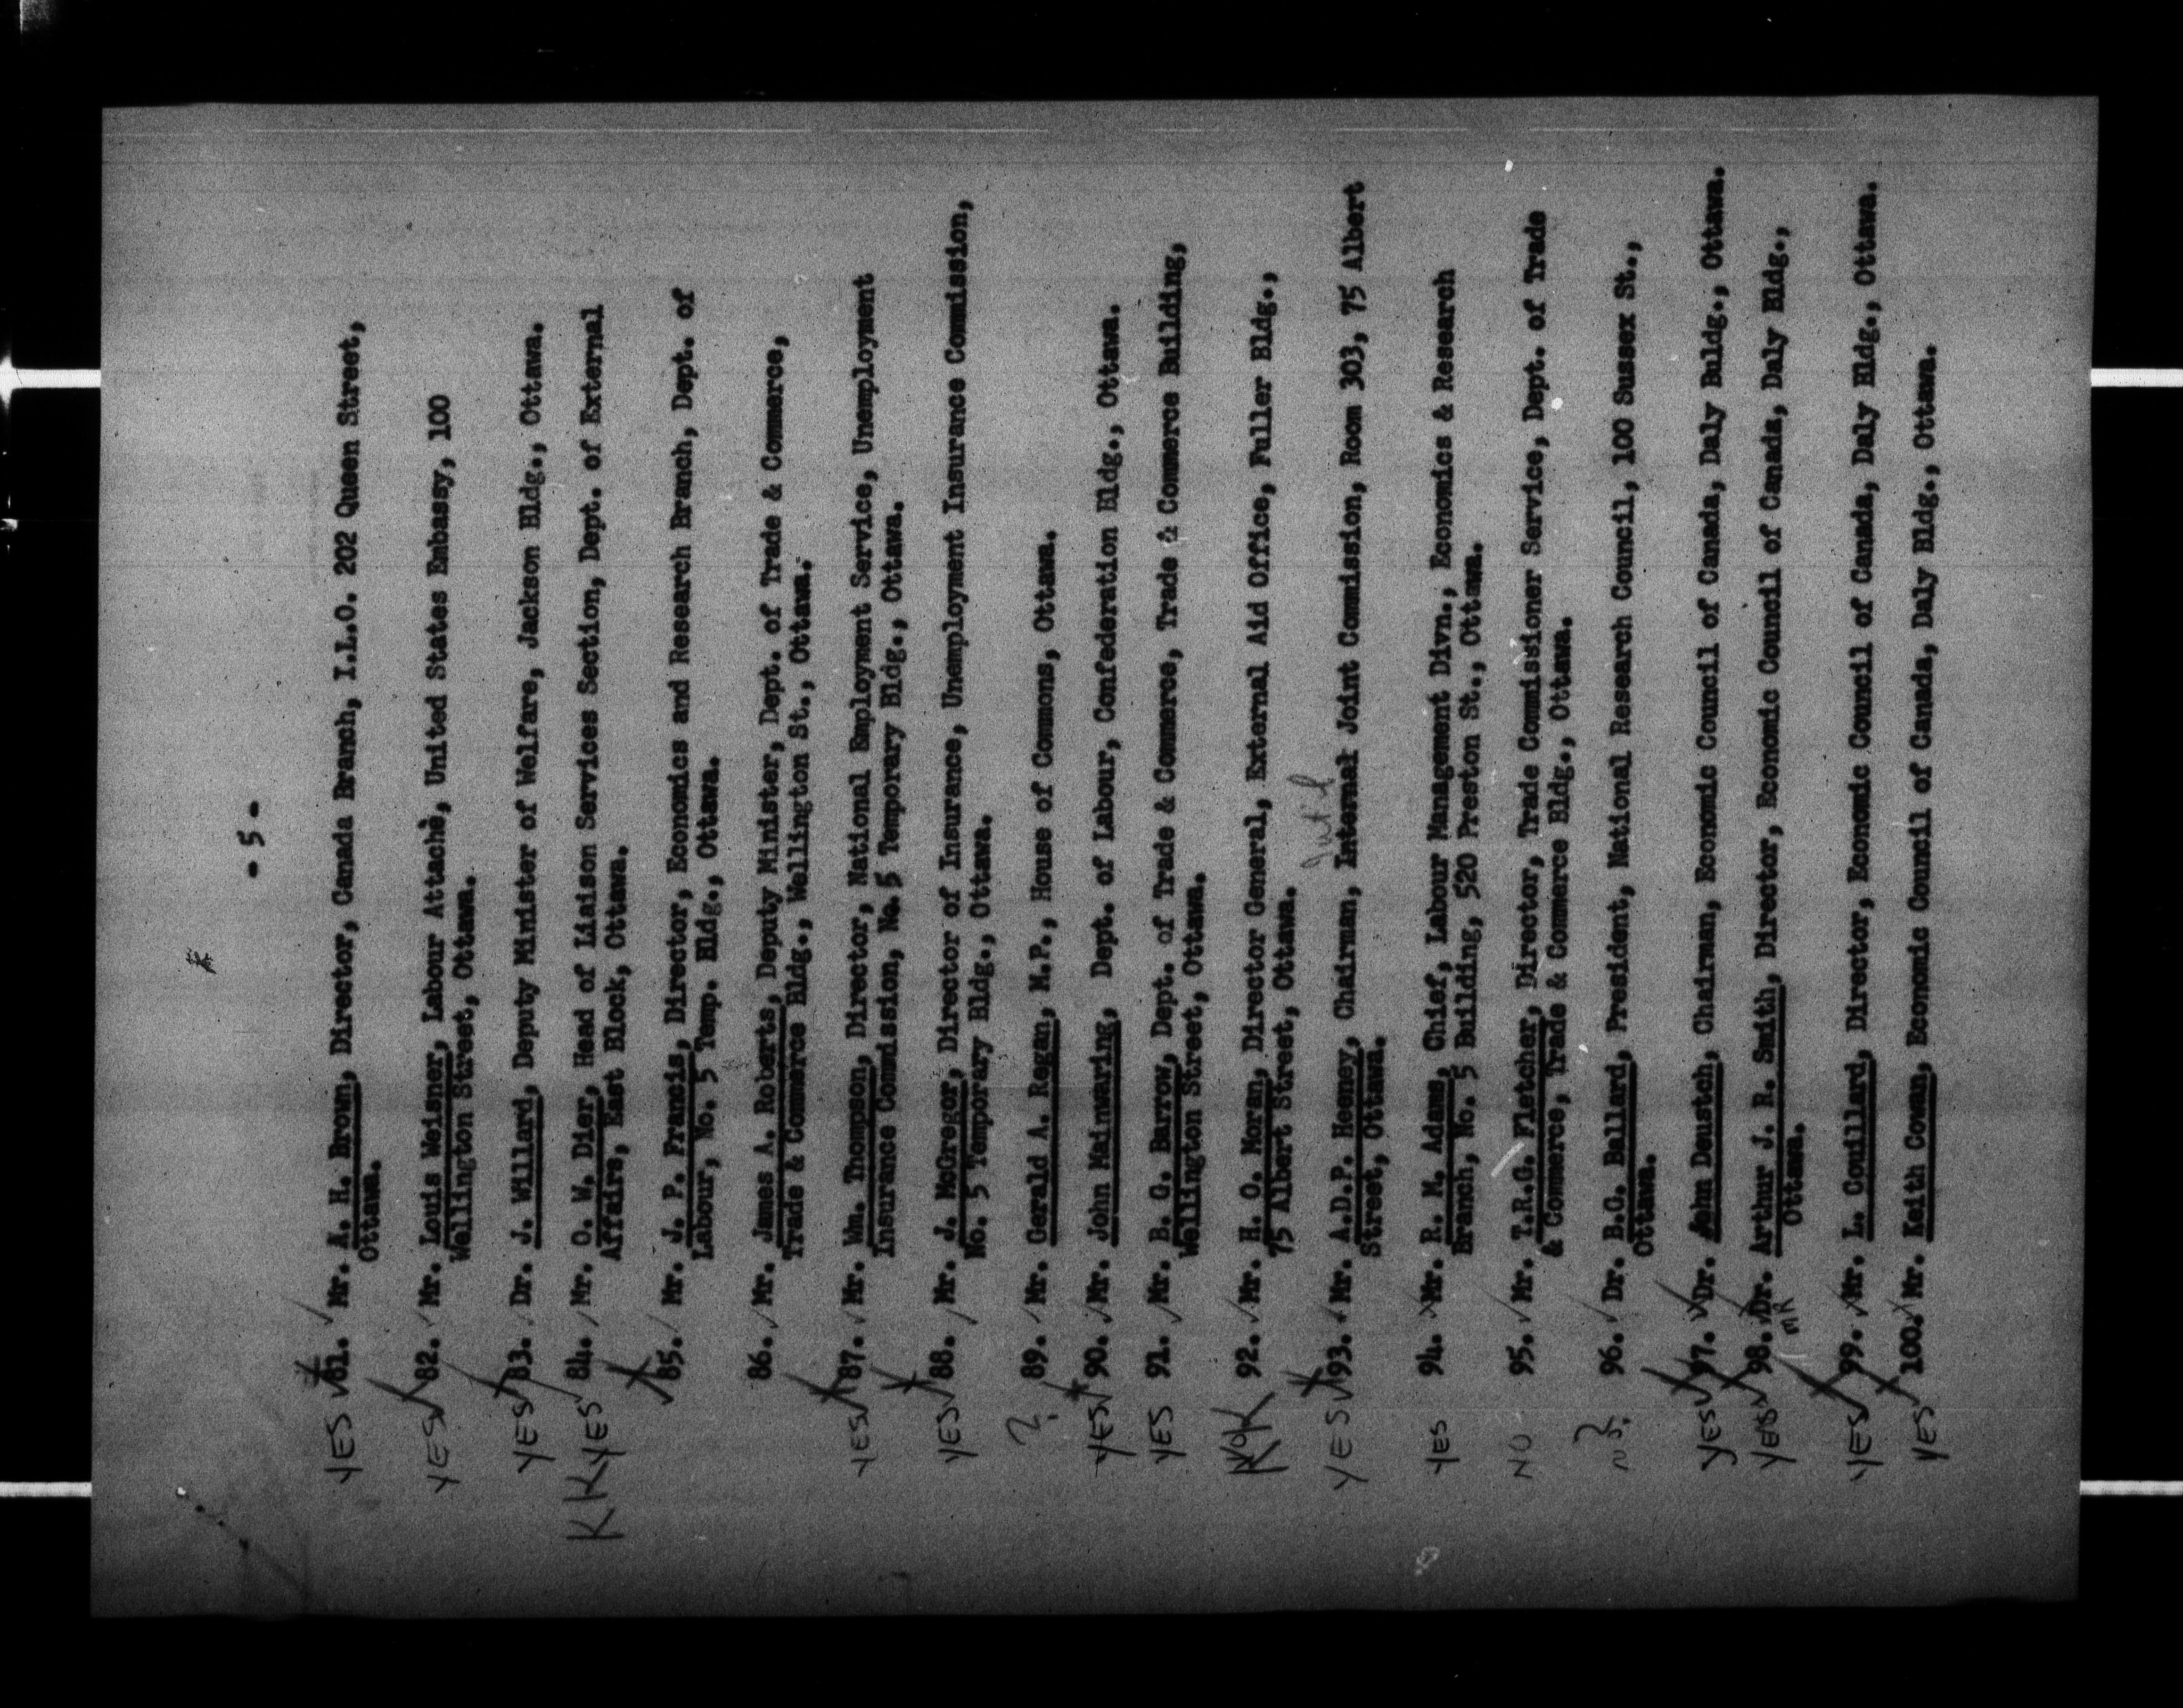 - 5 -
YES 81. Mr. A. H. Brown, Director, Canada Branch, I.L.O. 202 Queen Street,
Ottawa.
YES 82. Mr. Louis Weisner, Labour Attachè, United States Embassy, 100
Wellington Street, Ottawa.
YES 83. Dr. J. Willard, Deputy Minister of Welfare, Jackson Bldg., Ottawa.
KK YES 84. Mr. O. W. Dier, Head of Liaison Services Section, Dept. of External
Affairs, East Block, Ottawa.
85. Mr. J. P. Francis, Director, Economics and Research Branch, Dept. of
Labour, No. 5 Temp. Bldg., Ottawa.
86. Mr. James A. Roberts, Deputy Minister, Dept. of Trade & Commerce,
Trade & Commerce Bldg., Wellington St., Ottawa.
YES 87. Mr. Wm. Thompson, Director, National Employment Service, Unemployment
Insurance Commission, No. 5 Temporary Bldg., Ottawa.
YES 88. Mr. J. McGregor, Director of Insurance, Unemployment Insurance Commission,
No. 5 Temporary Bldg., Ottawa.
? 89. Mr. Gerald A. Regan, M.P., House of Commons, Ottawa.
YES 90. Mr. John Mainwaring, Dept. of Labour, Confederation Bldg., Ottawa.
YES 91. Mr. B. G. Barrow, Dept. of Trade & Commerce, Trade & Commerce Building,
Wellington Street, Ottawa.
92. Mr. H. O. Moran, Director General, External Aid Office, Fuller Bldg.,
75 Albert Street, Ottawa.
Int'l
YES 93. Mr. A.D.P. Heeney, Chairman, Internal Joint Commission, Room 303, 75 Albert
Street, Ottawa.
YES 94. Mr. R. M. Adams, Chief, Labour Management Divn., Economics & Research
Branch, No. 5 Building, 520 Preston St., Ottawa.
NO 95. Mr. T.R.G. Fletcher, Director, Trade Commissioner Service, Dept. of Trade
& Commerce, Trade & Commerce Bldg., Ottawa.
? 96. Dr. B.G. Ballard, President, National Research Council, 100 Sussex St.,
Ottawa.
YES 97. Dr. John Deustch, Chairman, Economic Council of Canada, Daly Buldg., Ottawa.
YES 98. Dr. Arthur J. R. Smith, Director, Economic Council of Canada, Daly Bldg.,
MR Ottawa.
YES 99. Mr. L. Couillard, Director, Economic Council of Canada, Daly Bldg., Ottawa.
YES 100. Mr. Keith Cowan, Economic Council of Canada, Daly Bldg., Ottawa.